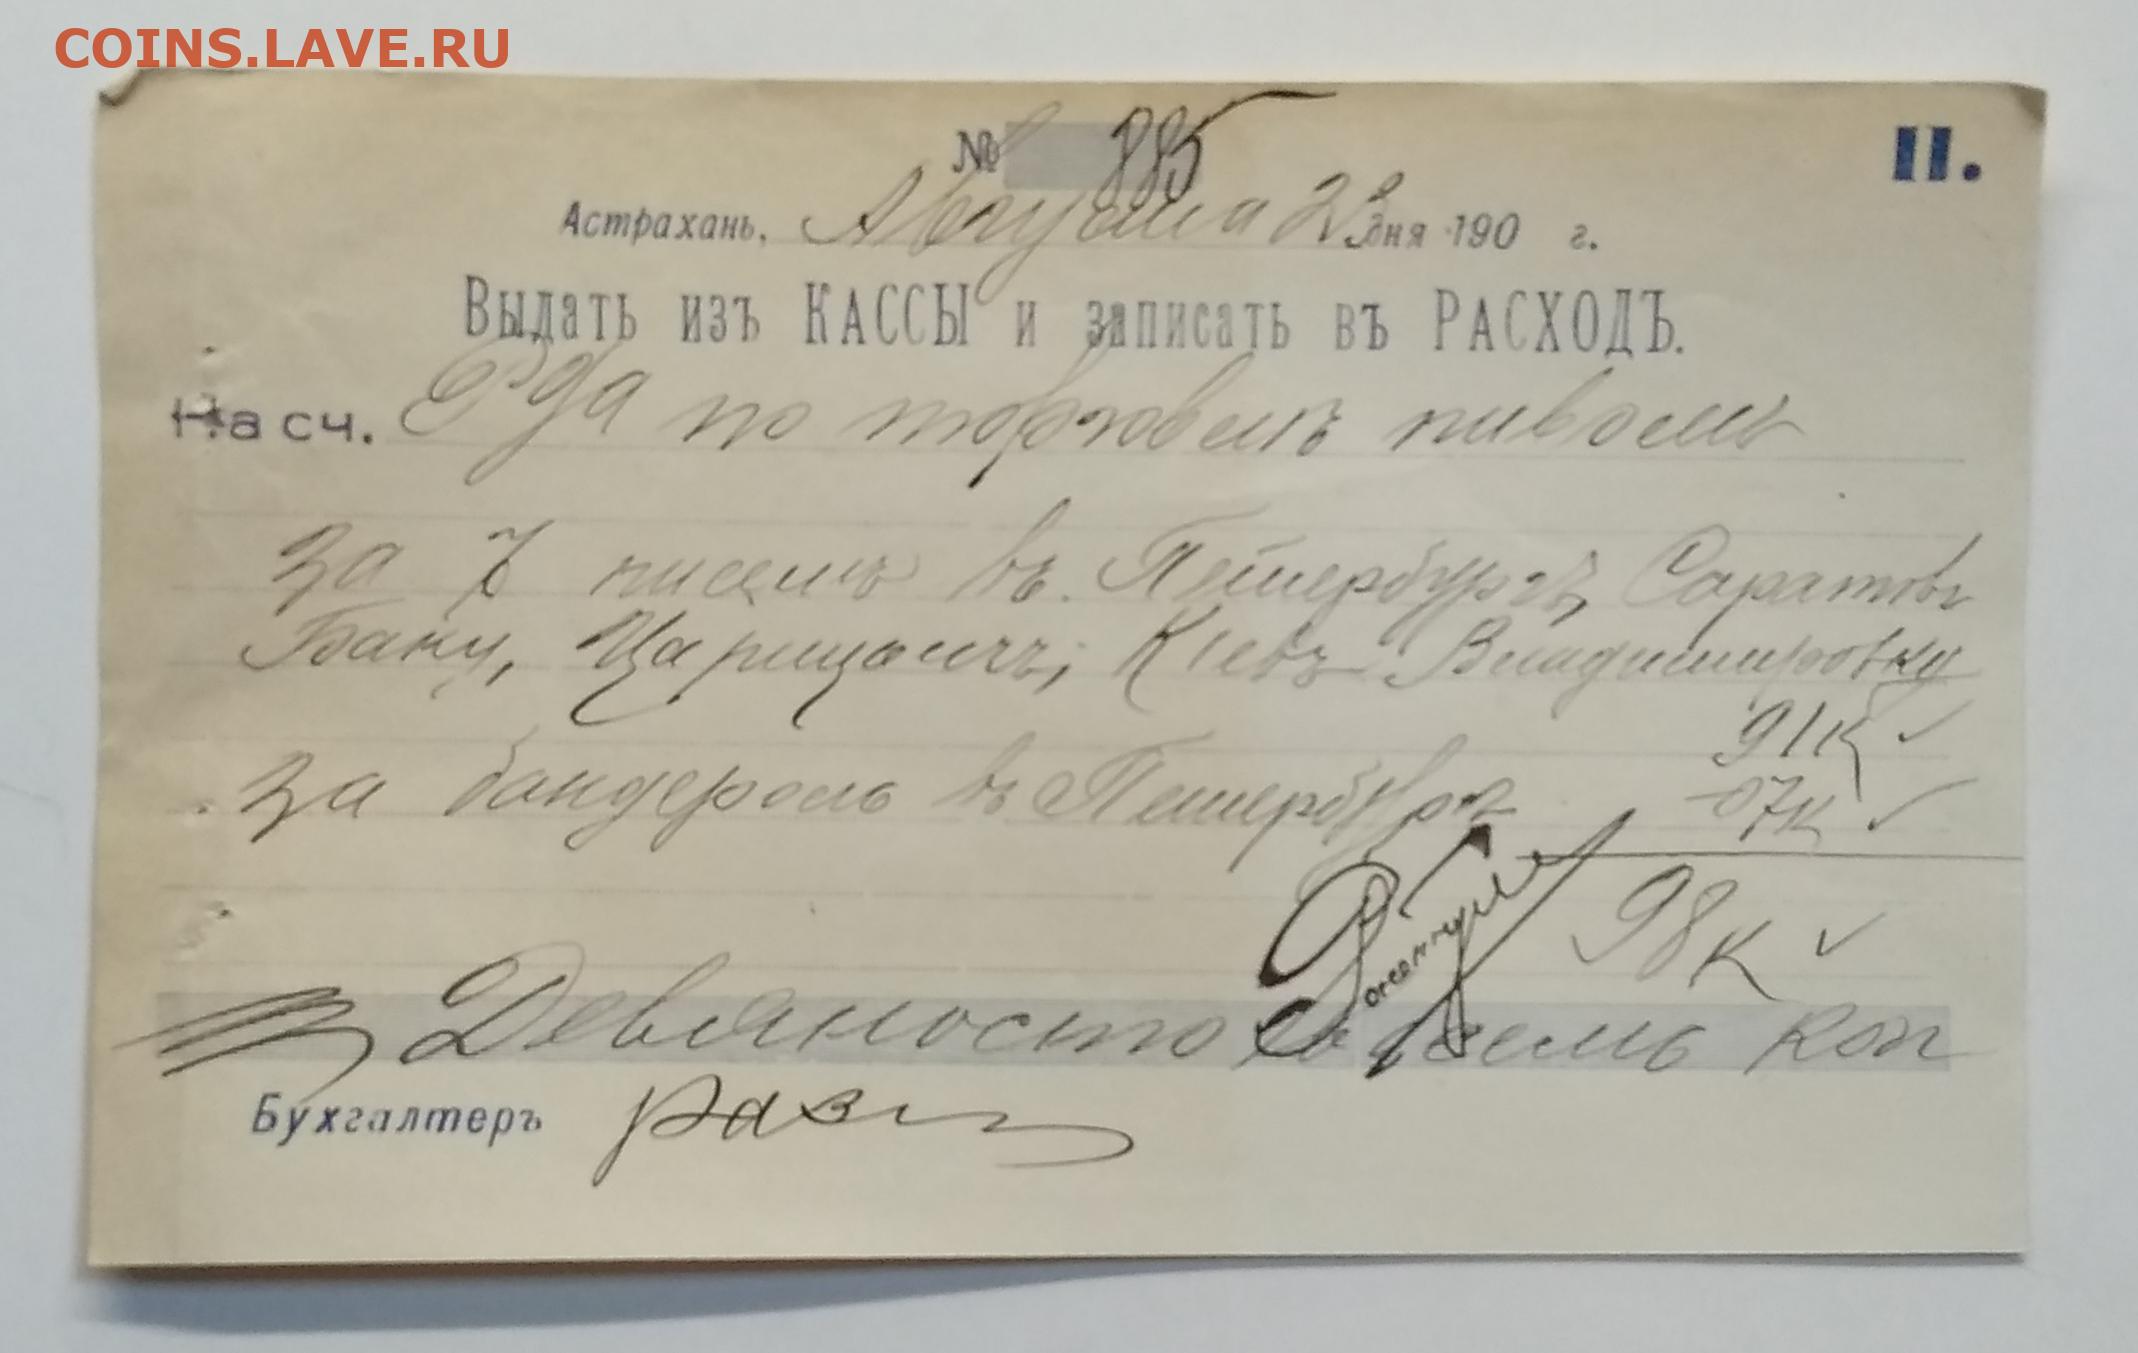 COINS.LAVE.RU
№ 885
II.
Астрахань, Августа 23 дня 190 г.
Выдать изъ КАССЫ и записать въ РАСХОДЪ.
На сч. по торговлѣ пивомъ
за 7 писемъ въ Петербургъ, Саратовъ
Баку, Царицынъ, Кіевъ Владимировку
91к
за бандероль въ Петербургъ 07к
98к
Девяносто восемь коп
Бухгалтеръ